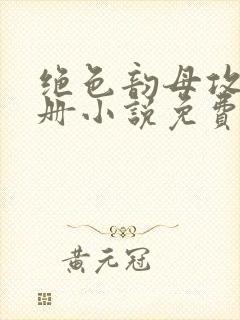 绝色韵母攻
册小说免費
黄元冠